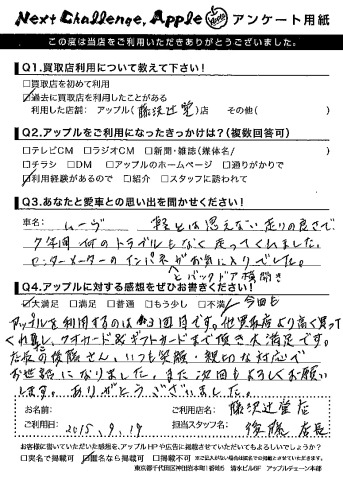 Next Challenge, Apple アンケート用紙
この度は当店をご利用いただきありがとうございました。
Q1.買取店利用について教えて下さい!
□買取店を初めて利用
☑過去に買取店を利用したことがある
利用した店舗: アップル(藤沢辻堂)店 その他( )
Q2.アップルをご利用になったきっかけは?(複数回答可)
□テレビCM □ラジオCM □新聞・雑誌(媒体名/ )
□チラシ □DM □アップルのホームページ □通りがかりで
☑利用経験があるので □紹介 □スタッフに誘われて
Q3.あなたと愛車との思い出を聞かせください!
車名: ムーヴ 軽とは思えない走りの良さで
7年間何のトラブルもなく走ってくれました。
センターメーターのインパネがお気に入りでした。
とバックドア横開き
Q4.アップルに対する感想をぜひお書きください!
☑大満足 □満足 □普通 □もう少し □不満 今回も
アップルを利用するのは3回目です。他買取店より高く買って
くれ且し、クオカード&ギフトカードまで頂き大満足です。
店長の後藤さん、いつも笑顔・親切な対応で
お世話になりました。また次回もよろしくお願い
します。ありがとうございました。
お名前: ご利用店名: 藤沢辻堂店
ご利用日: 2015.9.19 担当スタッフ名: 後藤店長
お客様に書いていただいた感想を、アップルHPや広告に掲載させていただいてもよろしいでしょうか?
□実名で掲載可 ☑匿名なら掲載可 □掲載不可
東京都千代田区神田岩本町1番地5 清水ビル6F アップルチェーン本部